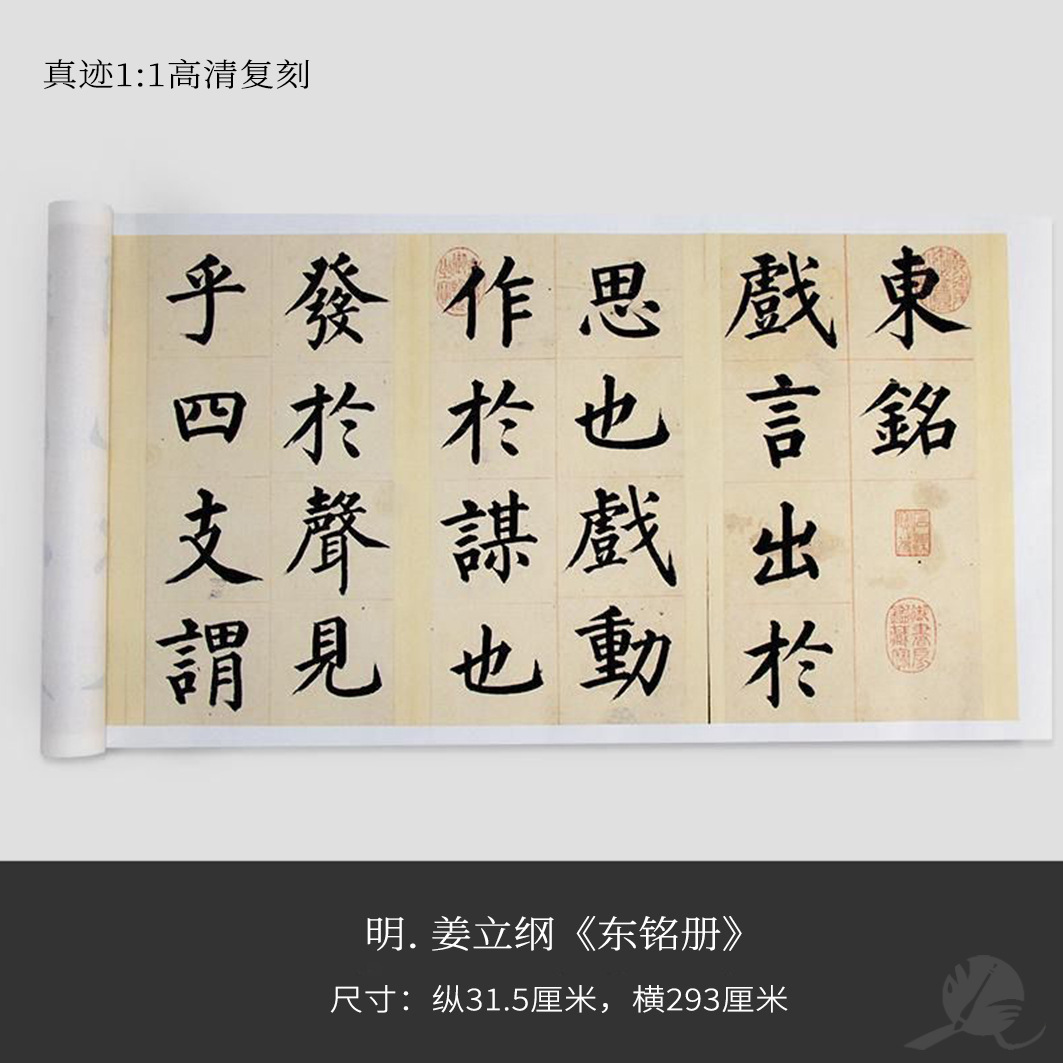 真迹1:1高清复刻
東銘
戲言出於
思也戲動
作於謀也
發於聲見
乎四支謂
明. 姜立纲《东铭册》
尺寸：纵31.5厘米，横293厘米